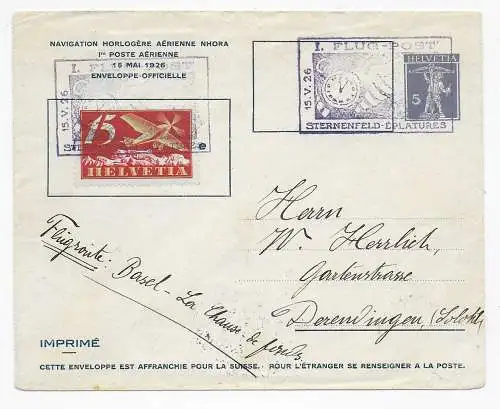 NAVIGATION HORLOGÈRE AÉRIENNE NHORA
Ire POSTE AÉRIENNE
15 MAI 1926
ENVELOPPE-OFFICIELLE
I. FLUG-POST
15.V.26
15
HELVETIA
I. FLUG-POST
15.V.26
STERNENFELD-ÉPLATURES
HELVETIA
5
Herrn
W. Herrlich,
Gartenstrasse
Derendingen, (Soloth.)
Flugroute: Basel - La Chaux-de-fonds.
IMPRIMÉ
CETTE ENVELOPPE EST AFFRANCHIE POUR LA SUISSE. - POUR L'ÉTRANGER SE RENSEIGNER A LA POSTE.